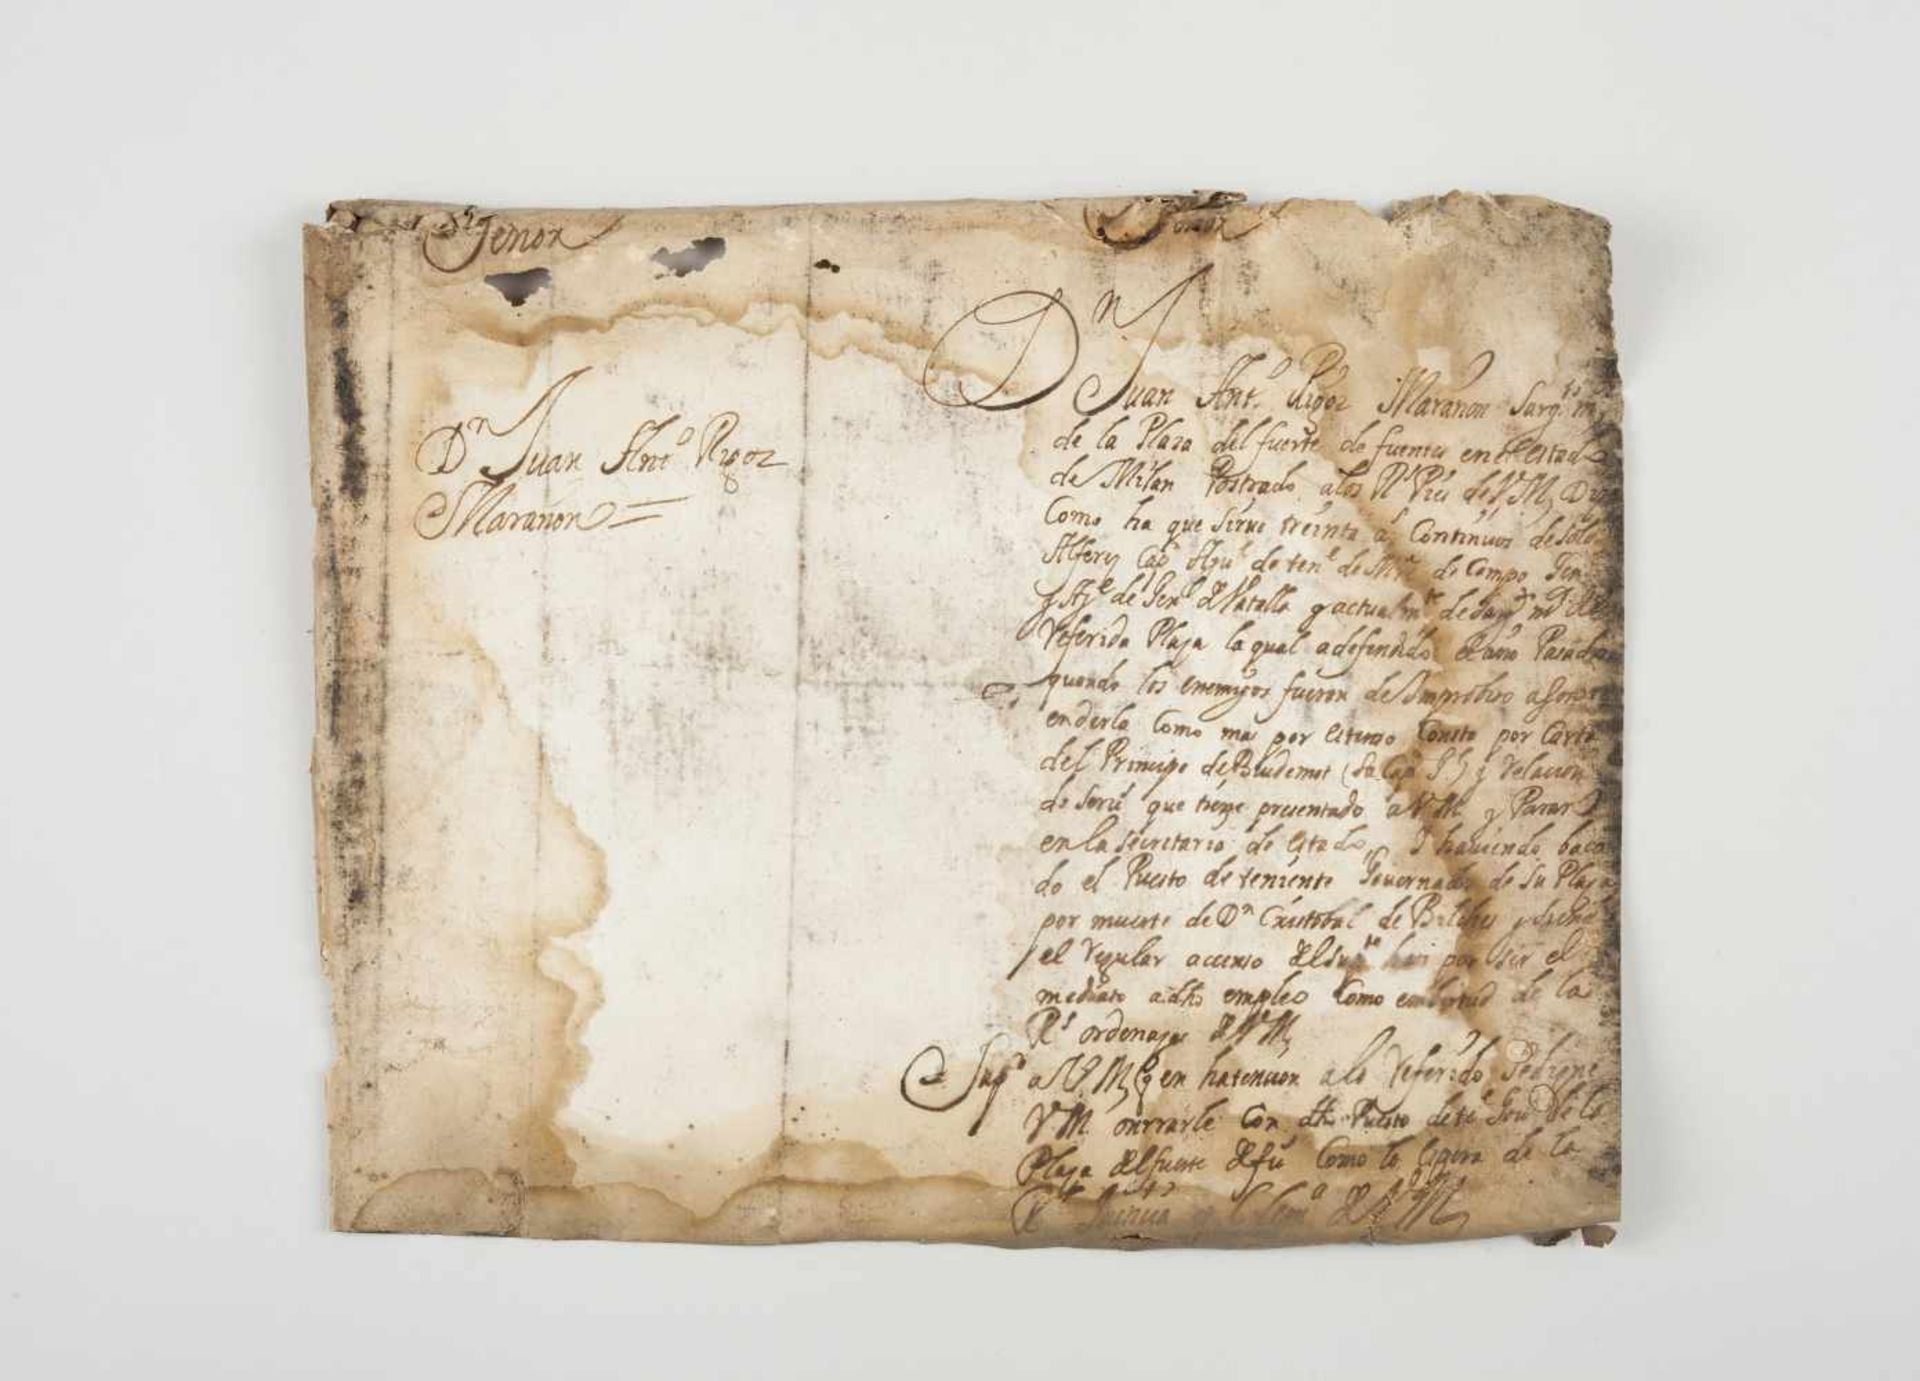 Señor
Señor
Dn Juan Anto Rigoz
Marañon =
Dn Juan Anto Rigoz Marañon Sargto mr
de la Plaza del fuerte de fuentes en el estado
de Milan Postrado a los Rs Pies de V.M, Dize
Como ha que sirue treinta as Continuos de
Alferez Capn de tente de Mre de Campo
y Aye de Genl de Vatalla y actualmte de Sargto mr de la
referida Plaza la qual a defendido el año Pasado
quando los enemigos fueron de improbiso a
enderla Como mas por estenso Consta por Carta
del Principe de Baudemot (Su Capn Gl) y relacion
de seru que tiene presentado a V M y Parar
en la secretaria de estado, I hauiendo baca
do el Puesto de teniente Gouernador de su Plaza
por muerte de Dn Cristobal de Bilches y siendo
el regular accenso del por ser el
mediato a dho empleo Como en de la
Rs ordenazas de V M,
Suppco a V. M, q en hatencion a lo referido
V M. onrrarle Con dho Puesto de te Gour de la
Plaza del fuerte de fus Como lo espera de la
Rl de V M,